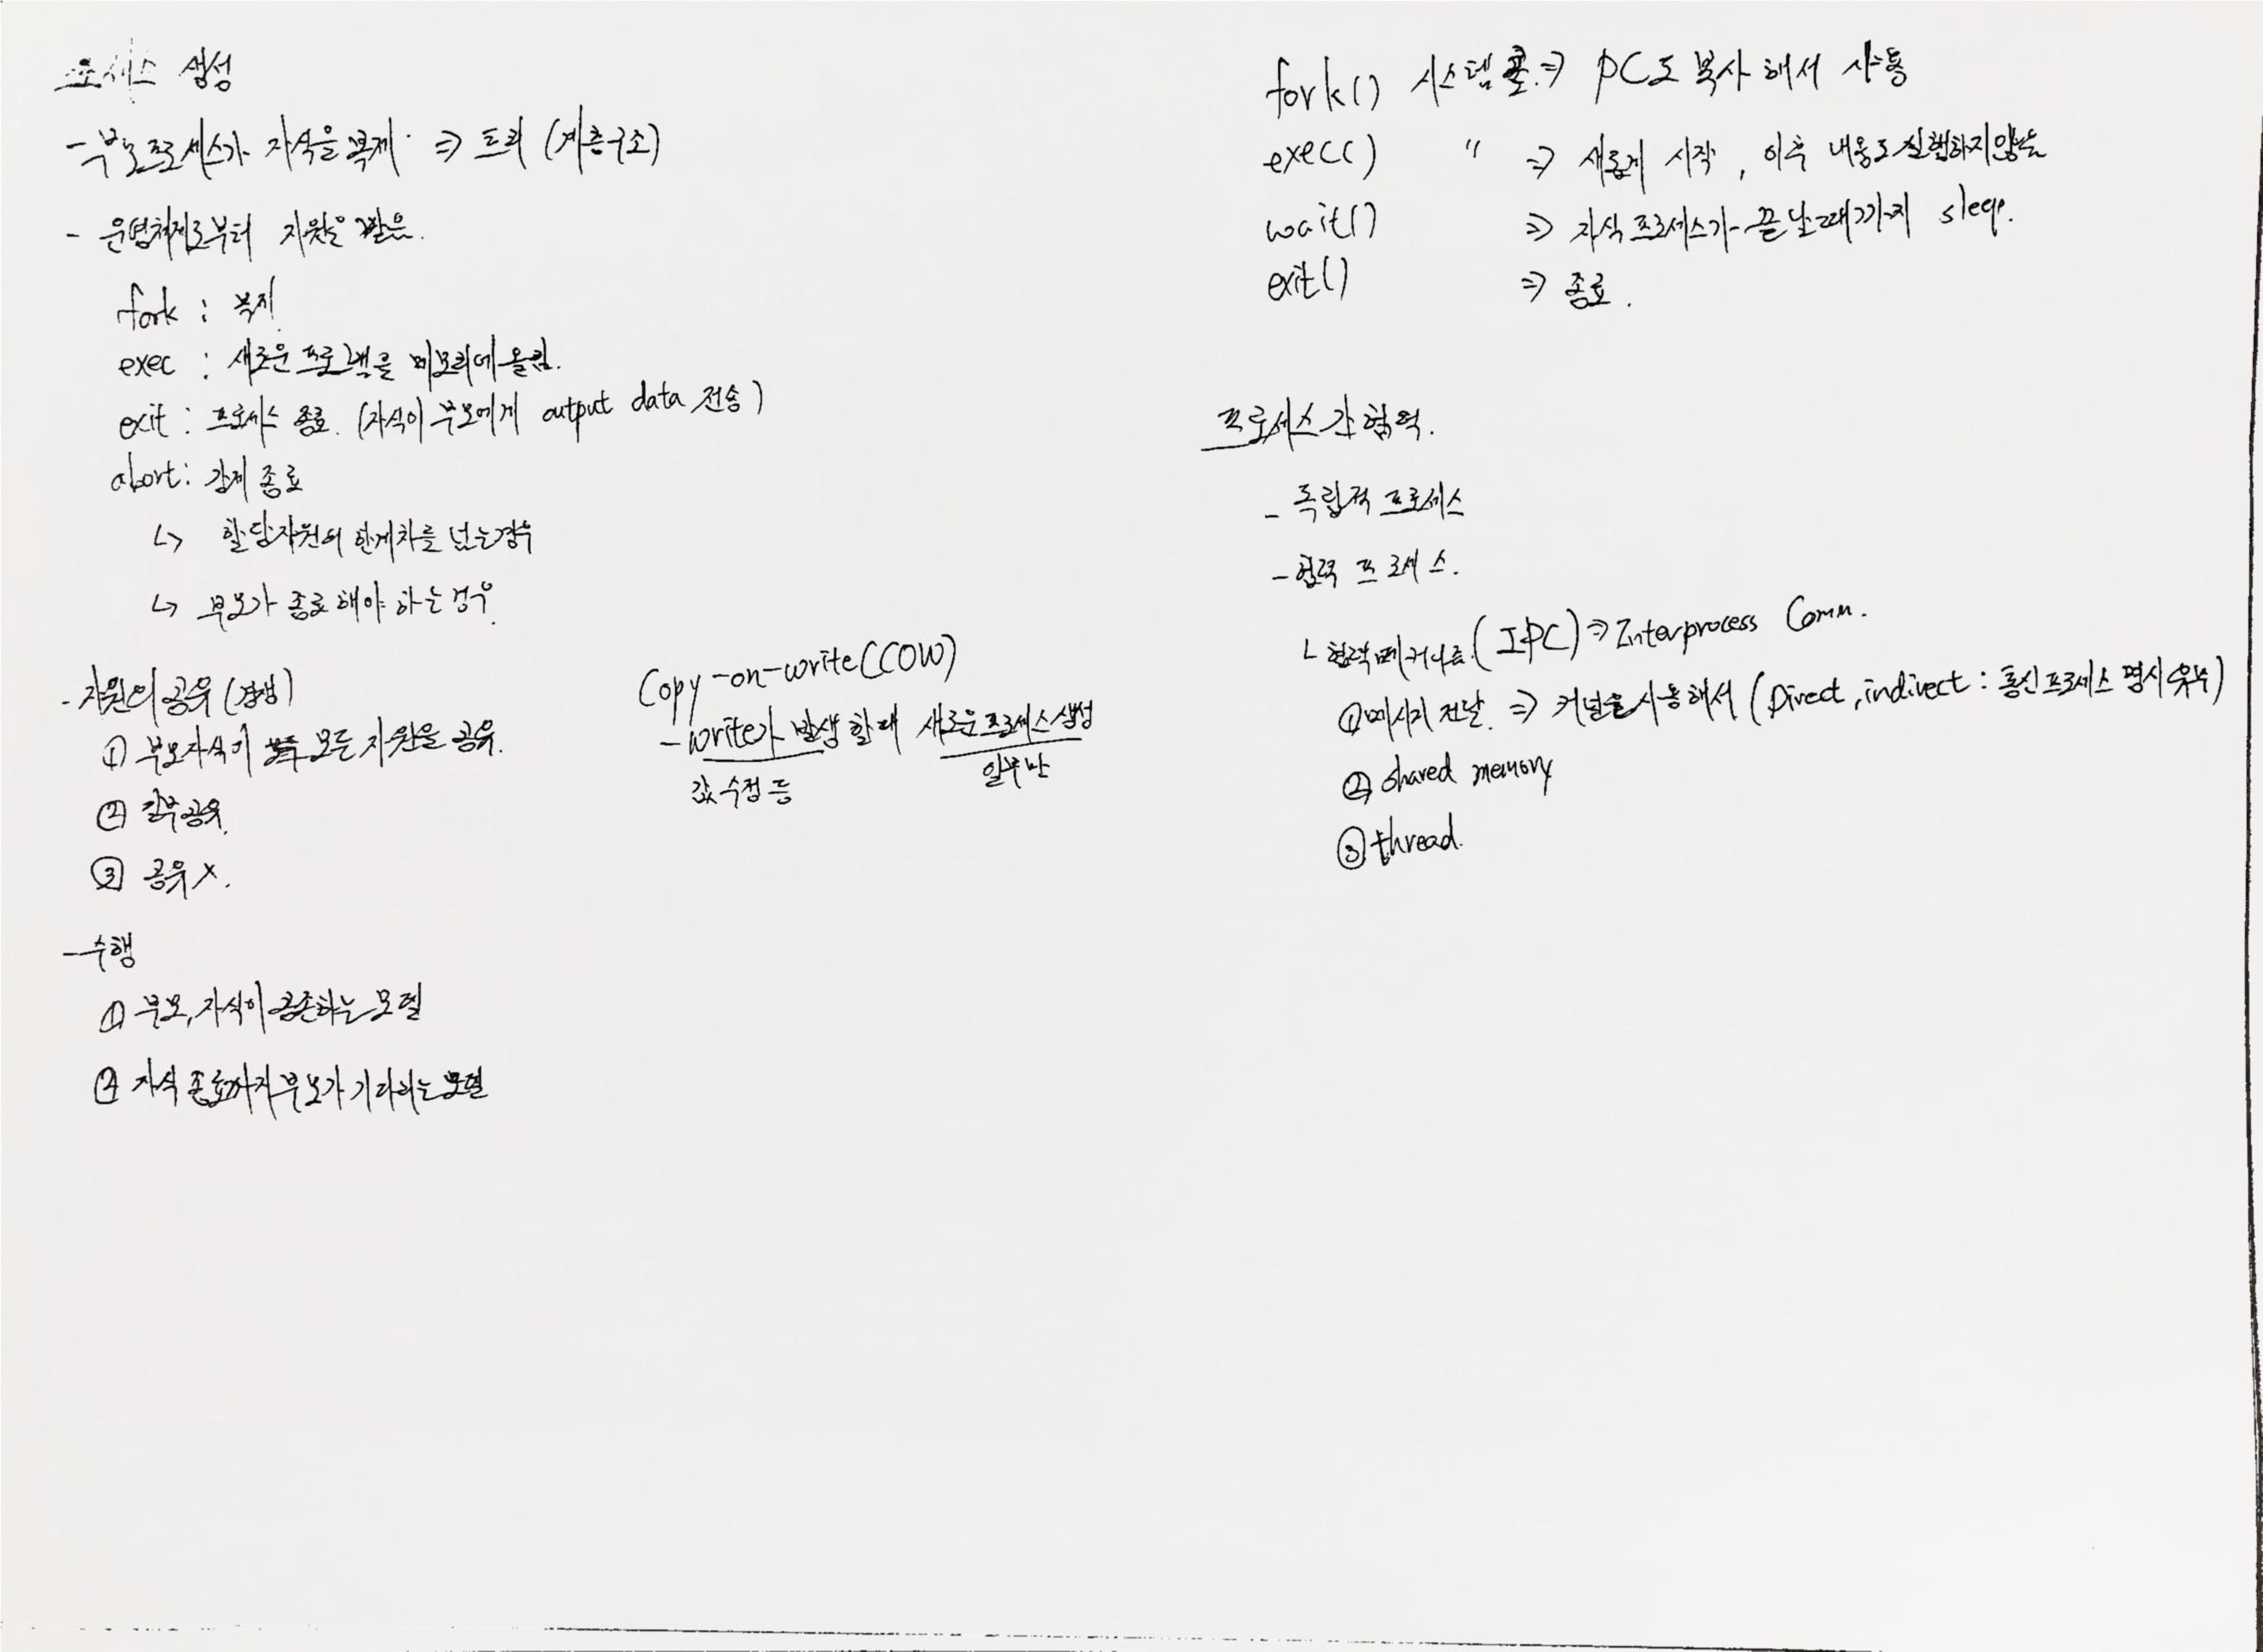 프로세스 생성
- 부모프로세스가 자식을 복제 ⇒ 트리 (계층구조)
- 운영체제로부터 자원을 받음.
fork : 복제
exec : 새로운 프로그램을 메모리에 올림.
exit : 프로세스 종료. (자식이 부모에게 output data 전송)
abort : 강제 종료
↳ 할당자원의 한계치를 넘는경우
↳ 부모가 종료해야 하는 경우.
- 자원의 공유 (경쟁)
① 부모자식이 모든 자원을 공유.
② 일부공유.
③ 공유 X.
Copy-on-write (COW)
- write가 발생할때 새로운프로세스생성
값 수정 등
일부만
- 수행
① 부모, 자식이 공존하는 모델
② 자식 종료까지 부모가 기다리는 모델
fork() 시스템 콜 ⇒ PC도 복사 해서 사용
exec() " ⇒ 새롭게 시작, 이후 내용도 실행하지않음
wait() ⇒ 자식 프로세스가 끝날때까지 sleep.
exit() ⇒ 종료.
프로세스 간 협력.
- 독립적 프로세스
- 협력 프로세스.
└ 협력 메커니즘 (IPC) ⇒ Interprocess Comm.
① 메시지 전달. ⇒ 커널을 사용해서 (Direct, indirect : 통신 프로세스 명시 유무)
② shared memory
③ thread.